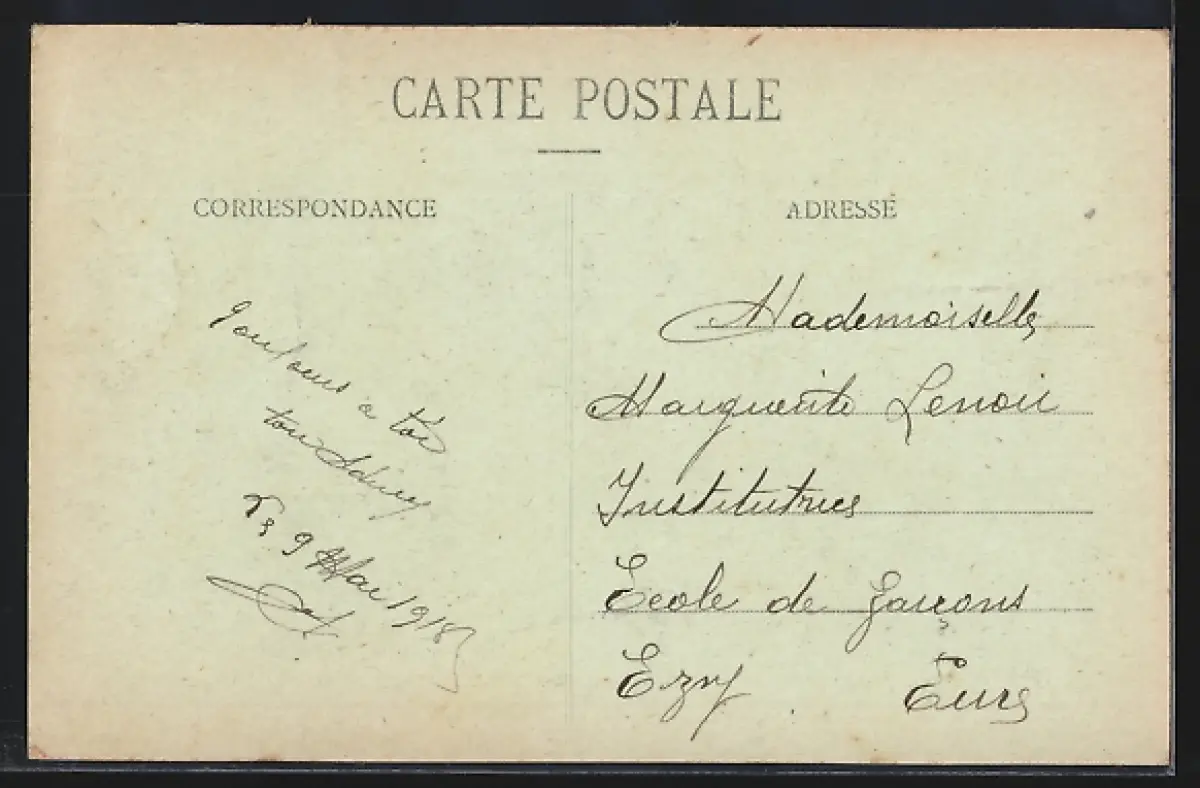 CARTE POSTALE
CORRESPONDANCE
ADRESSE
Toujours a toi
ton
9 Mai 1918
Mademoiselle
Marguerite Lenoir
Institutrice
École de garçons
Ezy Eure